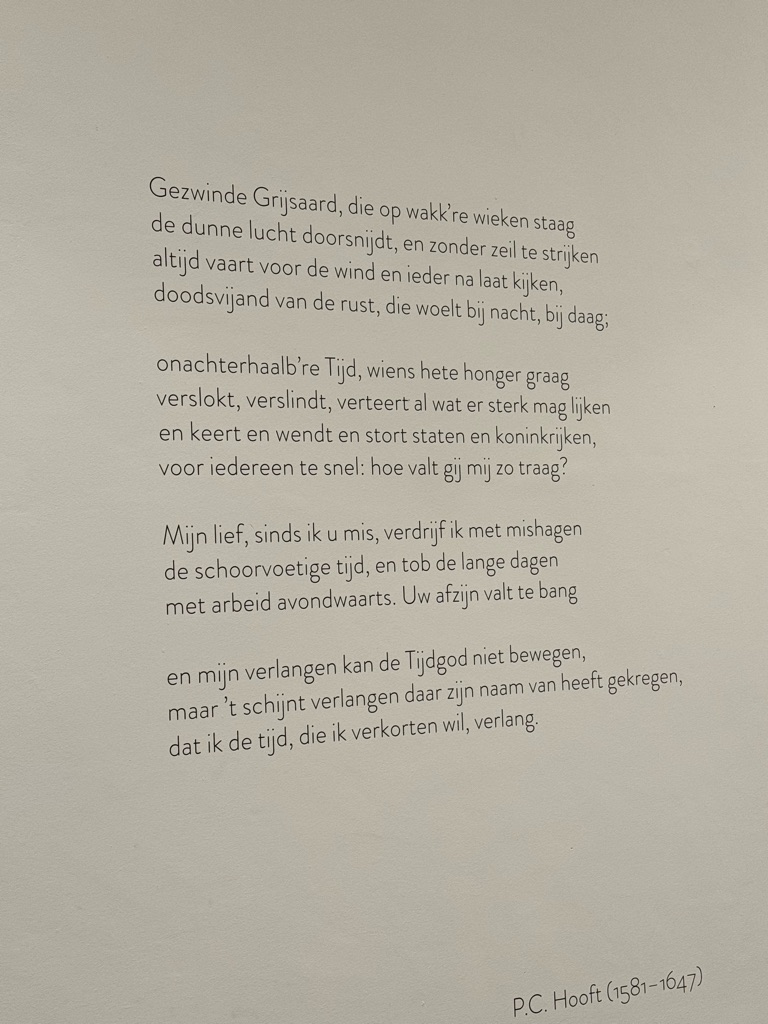 Gezwinde Grijsaard, die op wakk're wieken staag
de dunne lucht doorsnijdt, en zonder zeil te strijken
altijd vaart voor de wind en ieder na laat kijken,
doodsvijand van de rust, die woelt bij nacht, bij daag;
onachterhaalb're Tijd, wiens hete honger graag
verslokt, verslindt, verteert al wat er sterk mag lijken
en keert en wendt en stort staten en koninkrijken,
voor iedereen te snel: hoe valt gij mij zo traag?
Mijn lief, sinds ik u mis, verdrijf ik met mishagen
de schoorvoetige tijd, en tob de lange dagen
met arbeid avondwaarts. Uw afzijn valt te bang
en mijn verlangen kan de Tijdgod niet bewegen,
maar 't schijnt verlangen daar zijn naam van heeft gekregen,
dat ik de tijd, die ik verkorten wil, verlang.
P.C. Hooft (1581–1647)